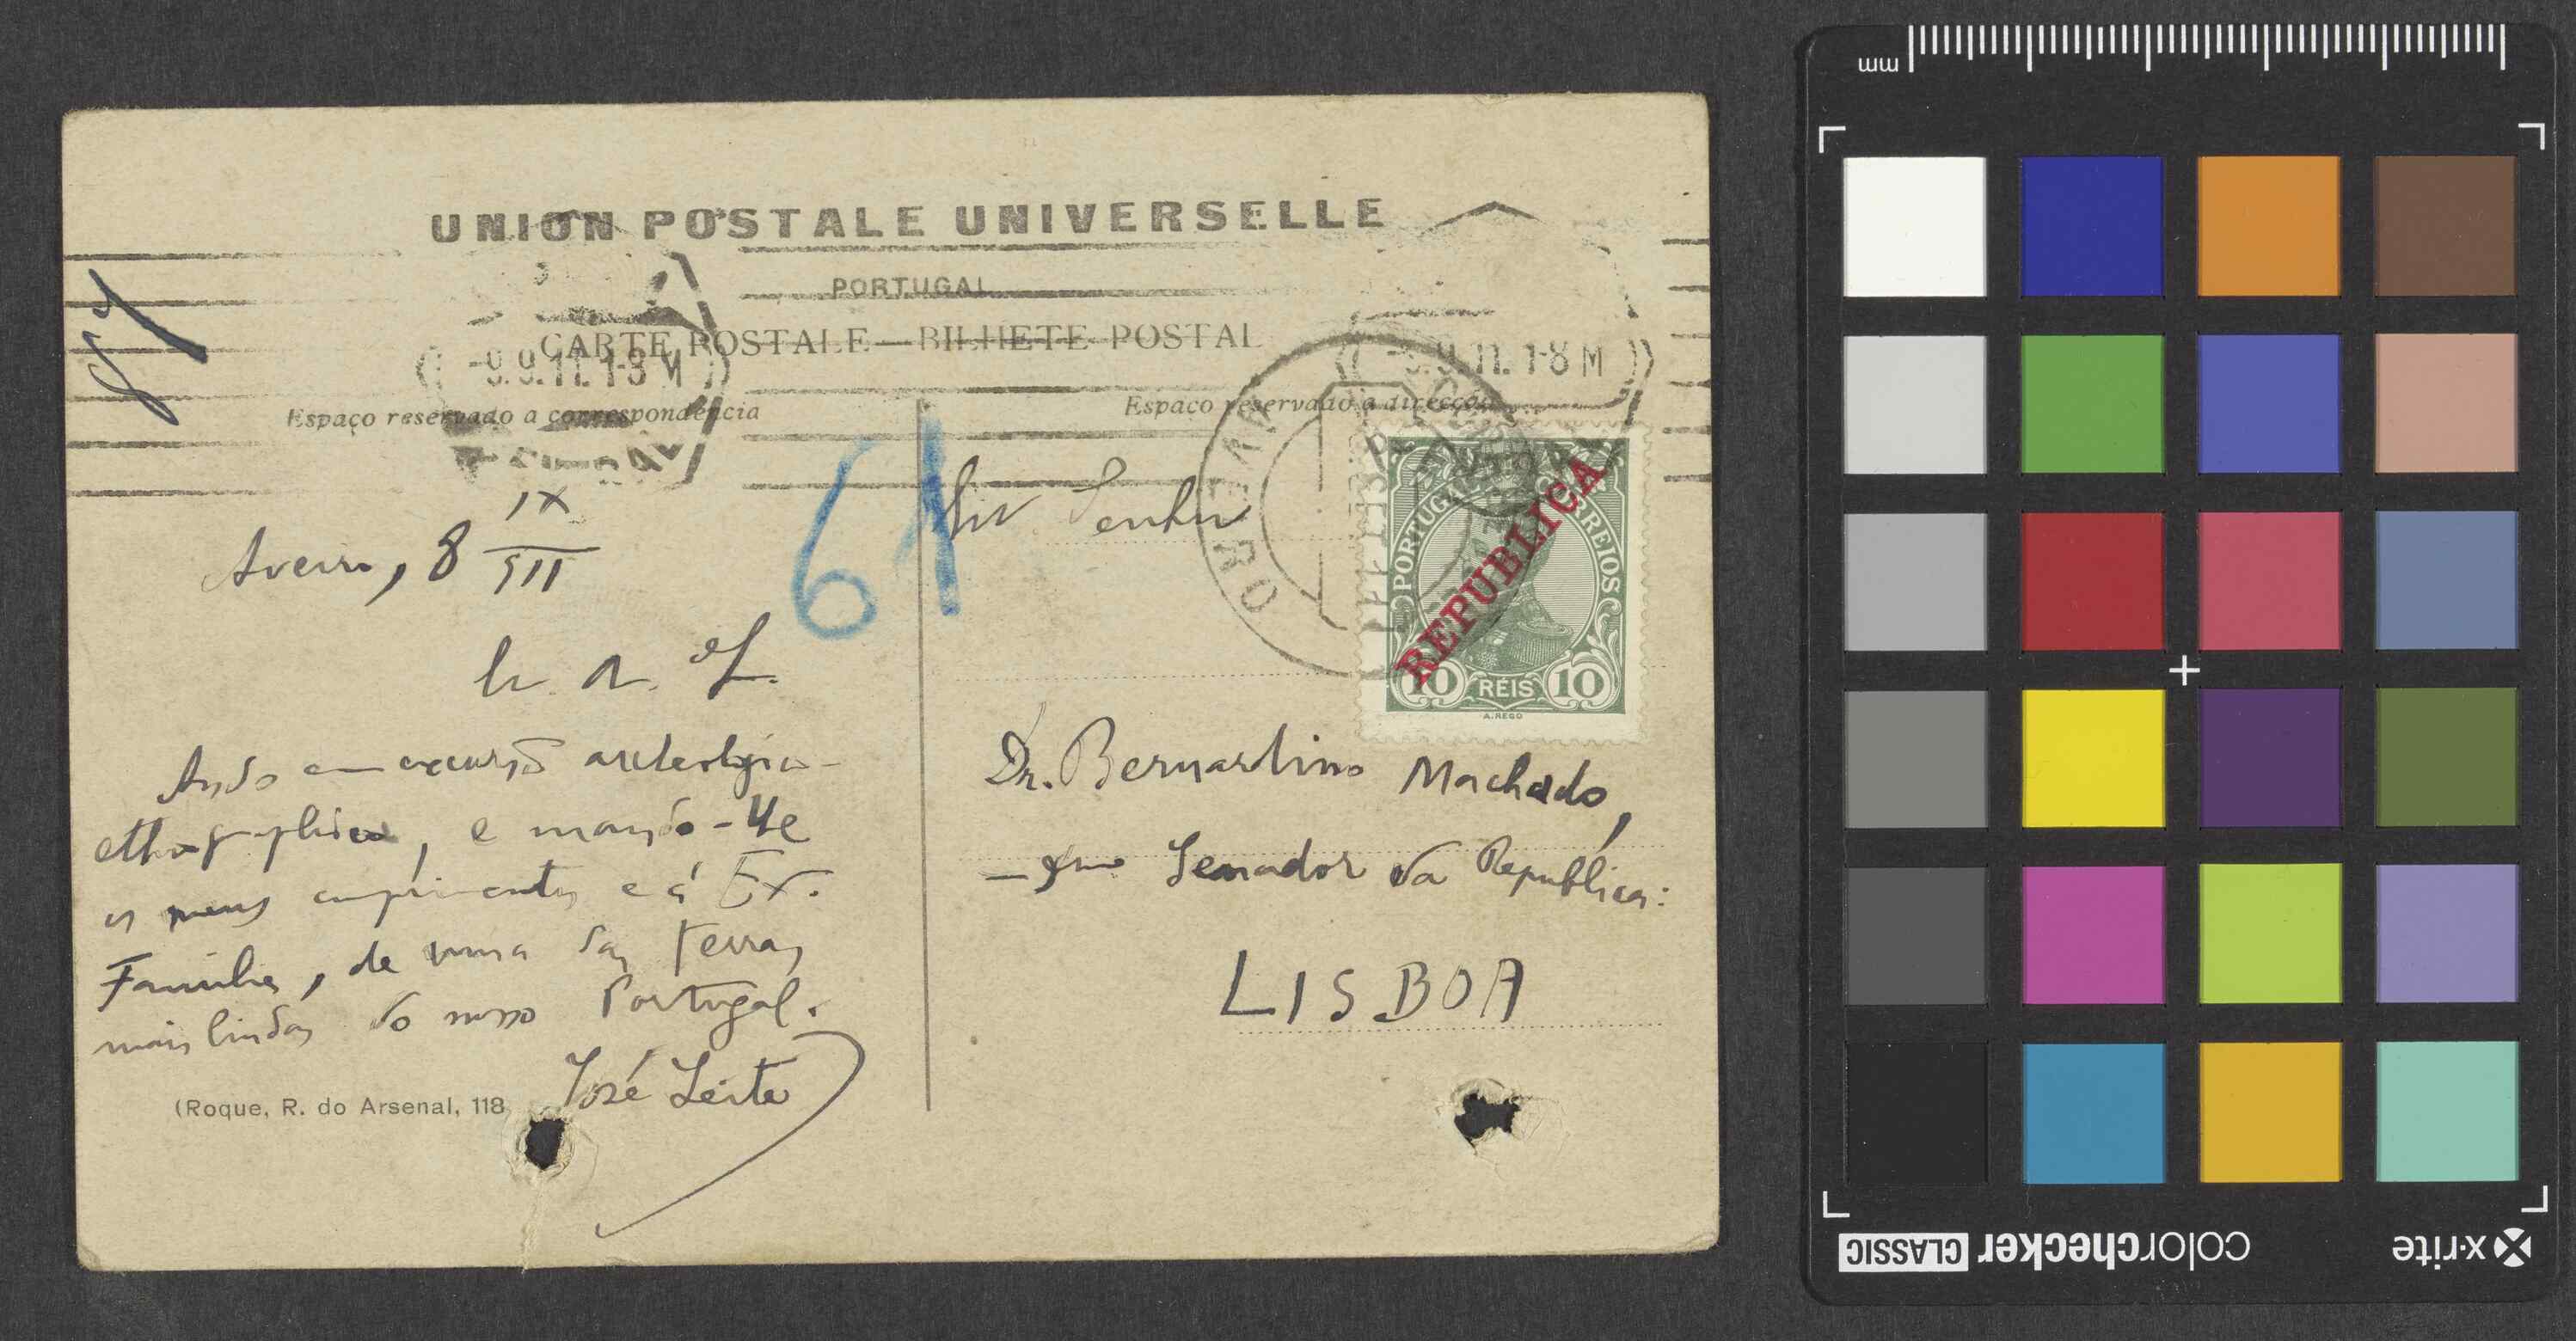 UNION POSTALE UNIVERSELLE
PORTUGAL
CARTE POSTALE—BILHETE POSTAL
-9.9.11. 1-8 M
-9.9.11. 1-8 M
Espaço reservado a correspondencia
Espaço reservado a direcção
61
Aveiro, 8 IX
911
Ando em excursão archeologico-
ethnographica, e mando-lhe
os meus cumprimentos e á Ex.
Familia, de uma das terras
mais lindas do nosso Portugal.
José Leite
(Roque, R. do Arsenal, 118
Senhor
PORTUGAL CORREIOS
REPUBLICA
10 REIS 10
A. REGO
Dr. Bernardino Machado,
Senador da Republica:
LISBOA
mm
x-rite colorchecker CLASSIC